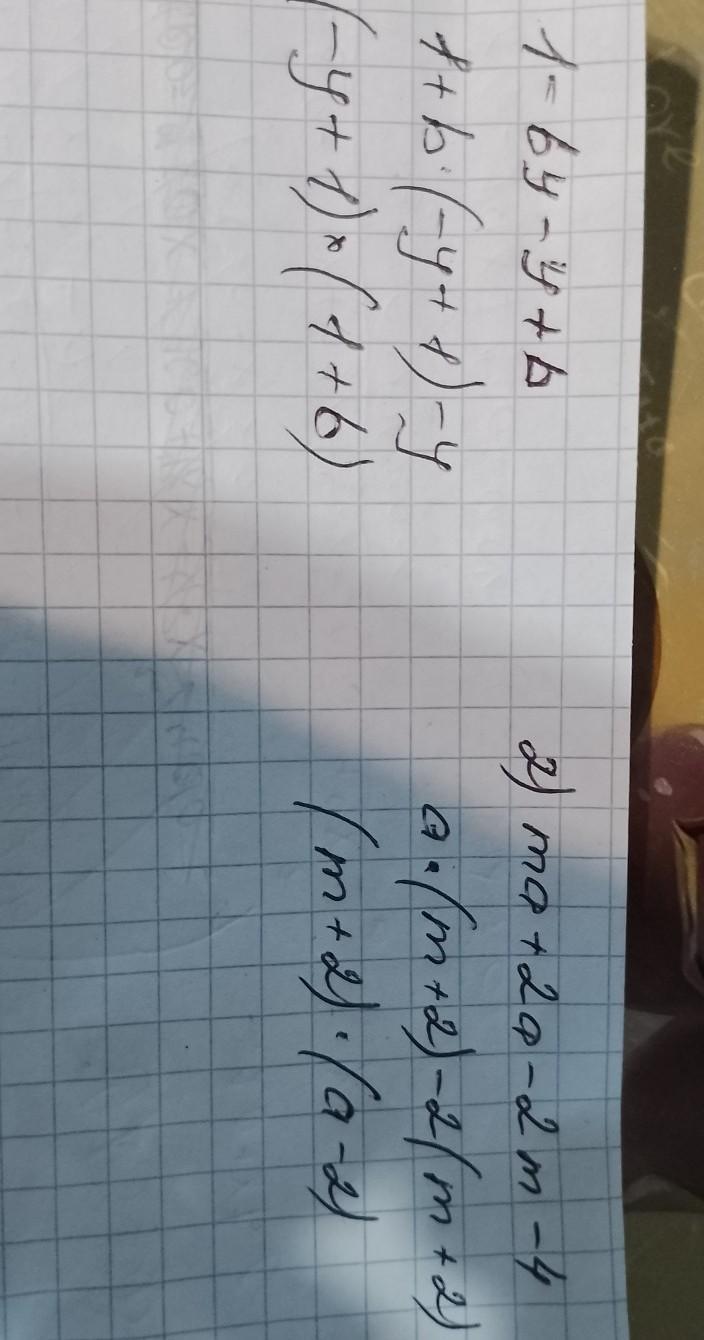 1 - by - y + b
1 + b · (-y + 1) - y
(-y + 1) · (1 + b)
2) ma + 2a - 2m - 4
a · (m + 2) - 2(m + 2)
(m + 2) · (a - 2)